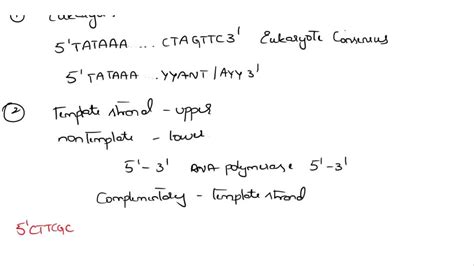 ① Eukaryot
5'TATAAA ... CTAGTTC3' Eukaryote Consensus
5'TATAAA ... YYANT/AYY3'
② Template strand - upper
nonTemplate - lower
5'-3' RNA polymerase 5'-3'
Complimentary - Template strand
5'CTTCGC